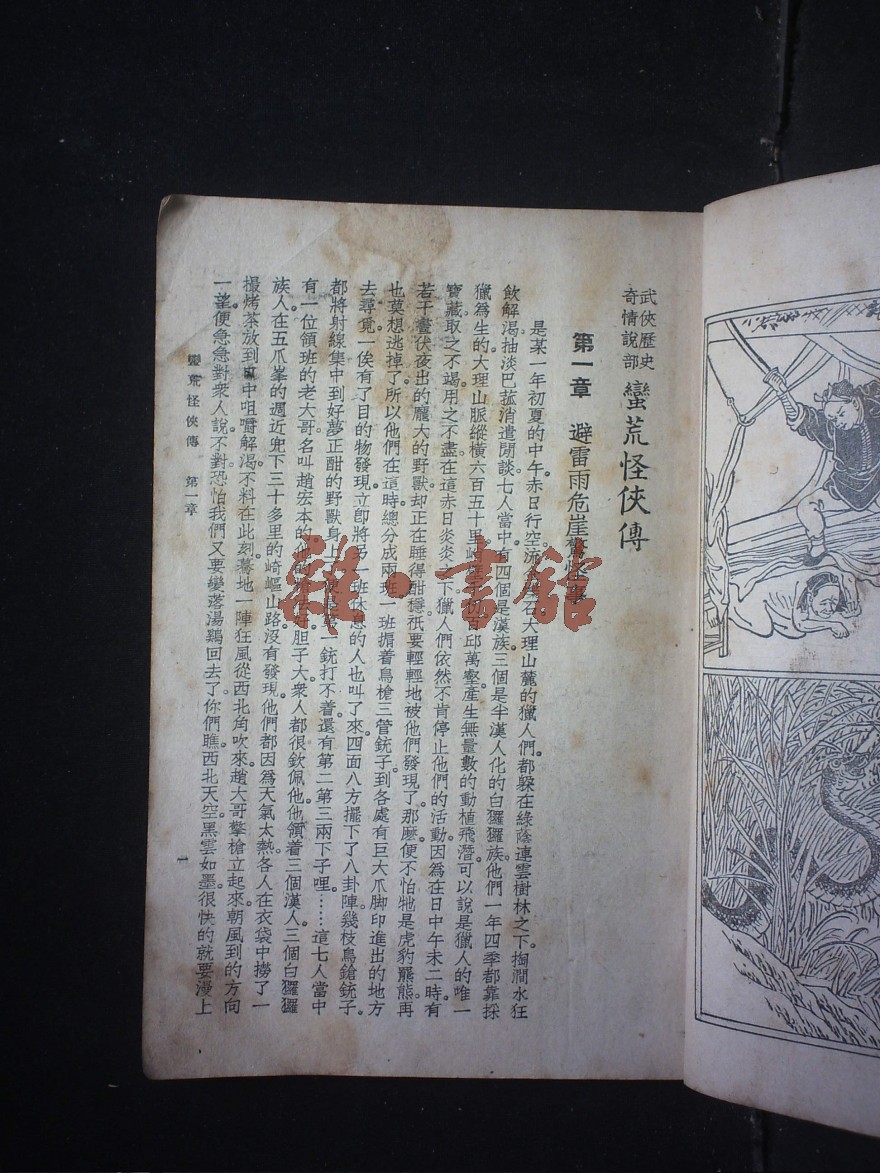 武俠歷史
奇情說部
蠻荒怪俠傳
第一章　避雷雨危崖驚怪事
是某一年初夏的中午赤日行空流石大理山麓的獵人們都躲在綠蔭連雲樹林之下掏澗水狂
飲解渴抽淡巴菰消遣閒談七人當中有四個是漢族三個是半漢人化的白玀玀族他們一年四季都靠採
獵為生的大理山脈縱橫六百五十里崎百邱萬壑產生無量數的動植飛潛可以說是獵人的唯一
寶藏取之不竭用之不盡在這赤日炎炎之下獵人們依然不肯停止他們的活動因為在日中午未二時有
若干晝伏夜出的龐大的野獸却正在睡得酣穩祇要輕輕地被他們發現了。那麽便不怕牠是虎豹羆熊再
也莫想逃掉了所以他們在這時總分成兩班一班揹着鳥槍三管銃子到各處有巨大爪脚印進出的地方
去尋覓一俟有了目的物發現立卽將另一班休息的人也叫了來四面八方擺下了八卦陣幾枝鳥鎗銃子。
都將射線集中到好夢正酣的野獸身上一銃打不着還有第二第三兩下子哩……這七人當中
有一位領班的老大哥名叫趙宏本的他的好胆子大衆人都很欽佩他他領着三個漢人三個白玀玀
族人在五爪峯的週近兜下三十多里的崎嶇山路沒有發現他們都因為天氣太熱各人在衣袋中撈了一
撮烤茶放到中咀嚼解渴不料在此刻驀地一陣狂風從西北角吹來趙大哥擎槍立起來朝風到的方向
一望便急急對衆人說不對恐怕我們又要變落湯鷄回去了你們瞧西北天空黑雲如墨很快的就要漫上
蠻荒怪俠傳　第一章
一
雜·書館